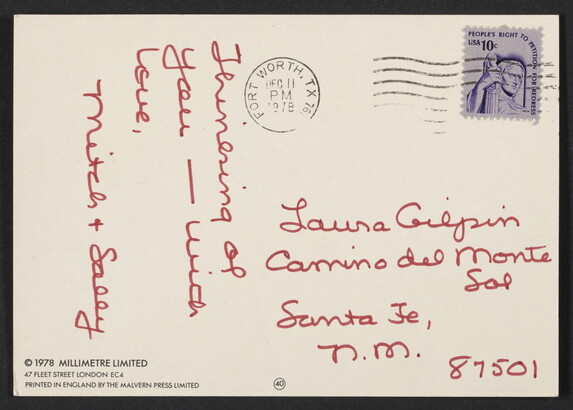 Thinking of
you — with
love,
Mitch + Sally
FORT WORTH, TX 76
DEC 11
PM
1978
PEOPLE'S RIGHT TO PETITION FOR REDRESS
USA 10c
Laura Gilpin
Camino del Monte
Sol
Santa Fe,
N.M.
87501
© 1978 MILLIMETRE LIMITED
47 FLEET STREET LONDON EC4
PRINTED IN ENGLAND BY THE MALVERN PRESS LIMITED
40